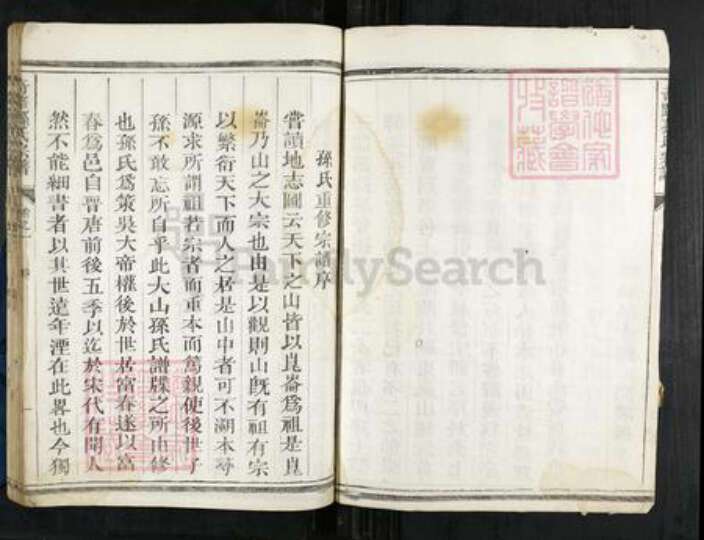 孫氏重修宗譜序
嘗讀地志圖云天下之山皆以崑崙爲祖是崑
崙乃山之大宗也由是以觀則山旣有祖有宗
以繁衍天下而人之居是山中者可不溯本尋
源求所謂祖若宗者而重本而篤親使後世子
孫不敢忘所自乎此大山孫氏譜牒之所由修
也孫氏爲策吳大帝權後於世居富春遂以富
春爲邑自晋唐前後五季以迄於宋代有聞人
然不能細書者以其世遠年湮在此畧也今獨
FamilySearch